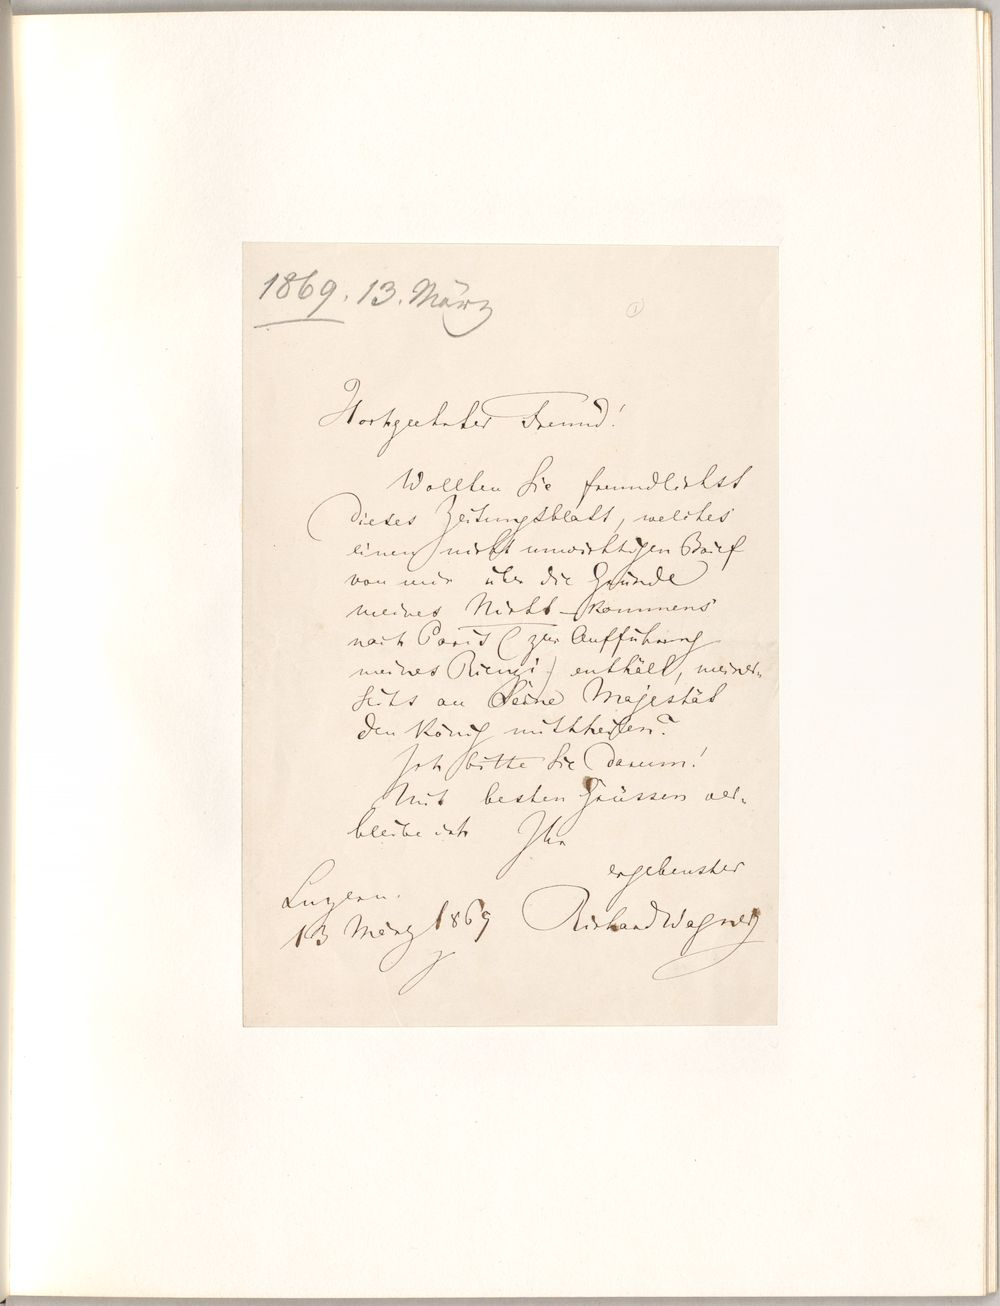 1869. 13. März
1
Hochgeehrter Freund!
Wollten Sie freundlichst
dieses Zeitungsblatt, welches
einen nicht unwichtigen Brief
von mir über die Gründe
meines Nicht-kommens
nach Paris (zur Aufführung
meines Rienzi) enthält, meiner-
seits an Seine Majestät
den König mittheilen?
Ich bitte Sie darum!
Mit besten Grüssen ver-
bleibe ich Ihr
ergebenster
Luzern.
13 März 1869 Richard Wagner